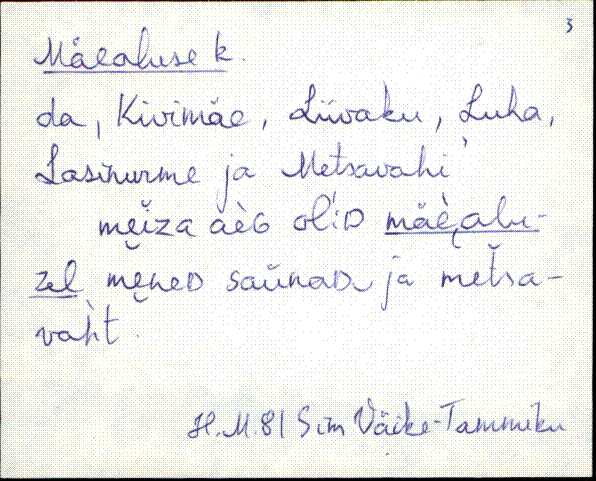 3
Mäealuse k.
da, Kivimäe, Liivaku, Luha,
Lasinurme ja Metsavahi
meĭza aèG ol'iD mäèalu-
zel meneD saŭnaD ja metsa-
vaht
H.M.81 Sim Väike-Tammiku